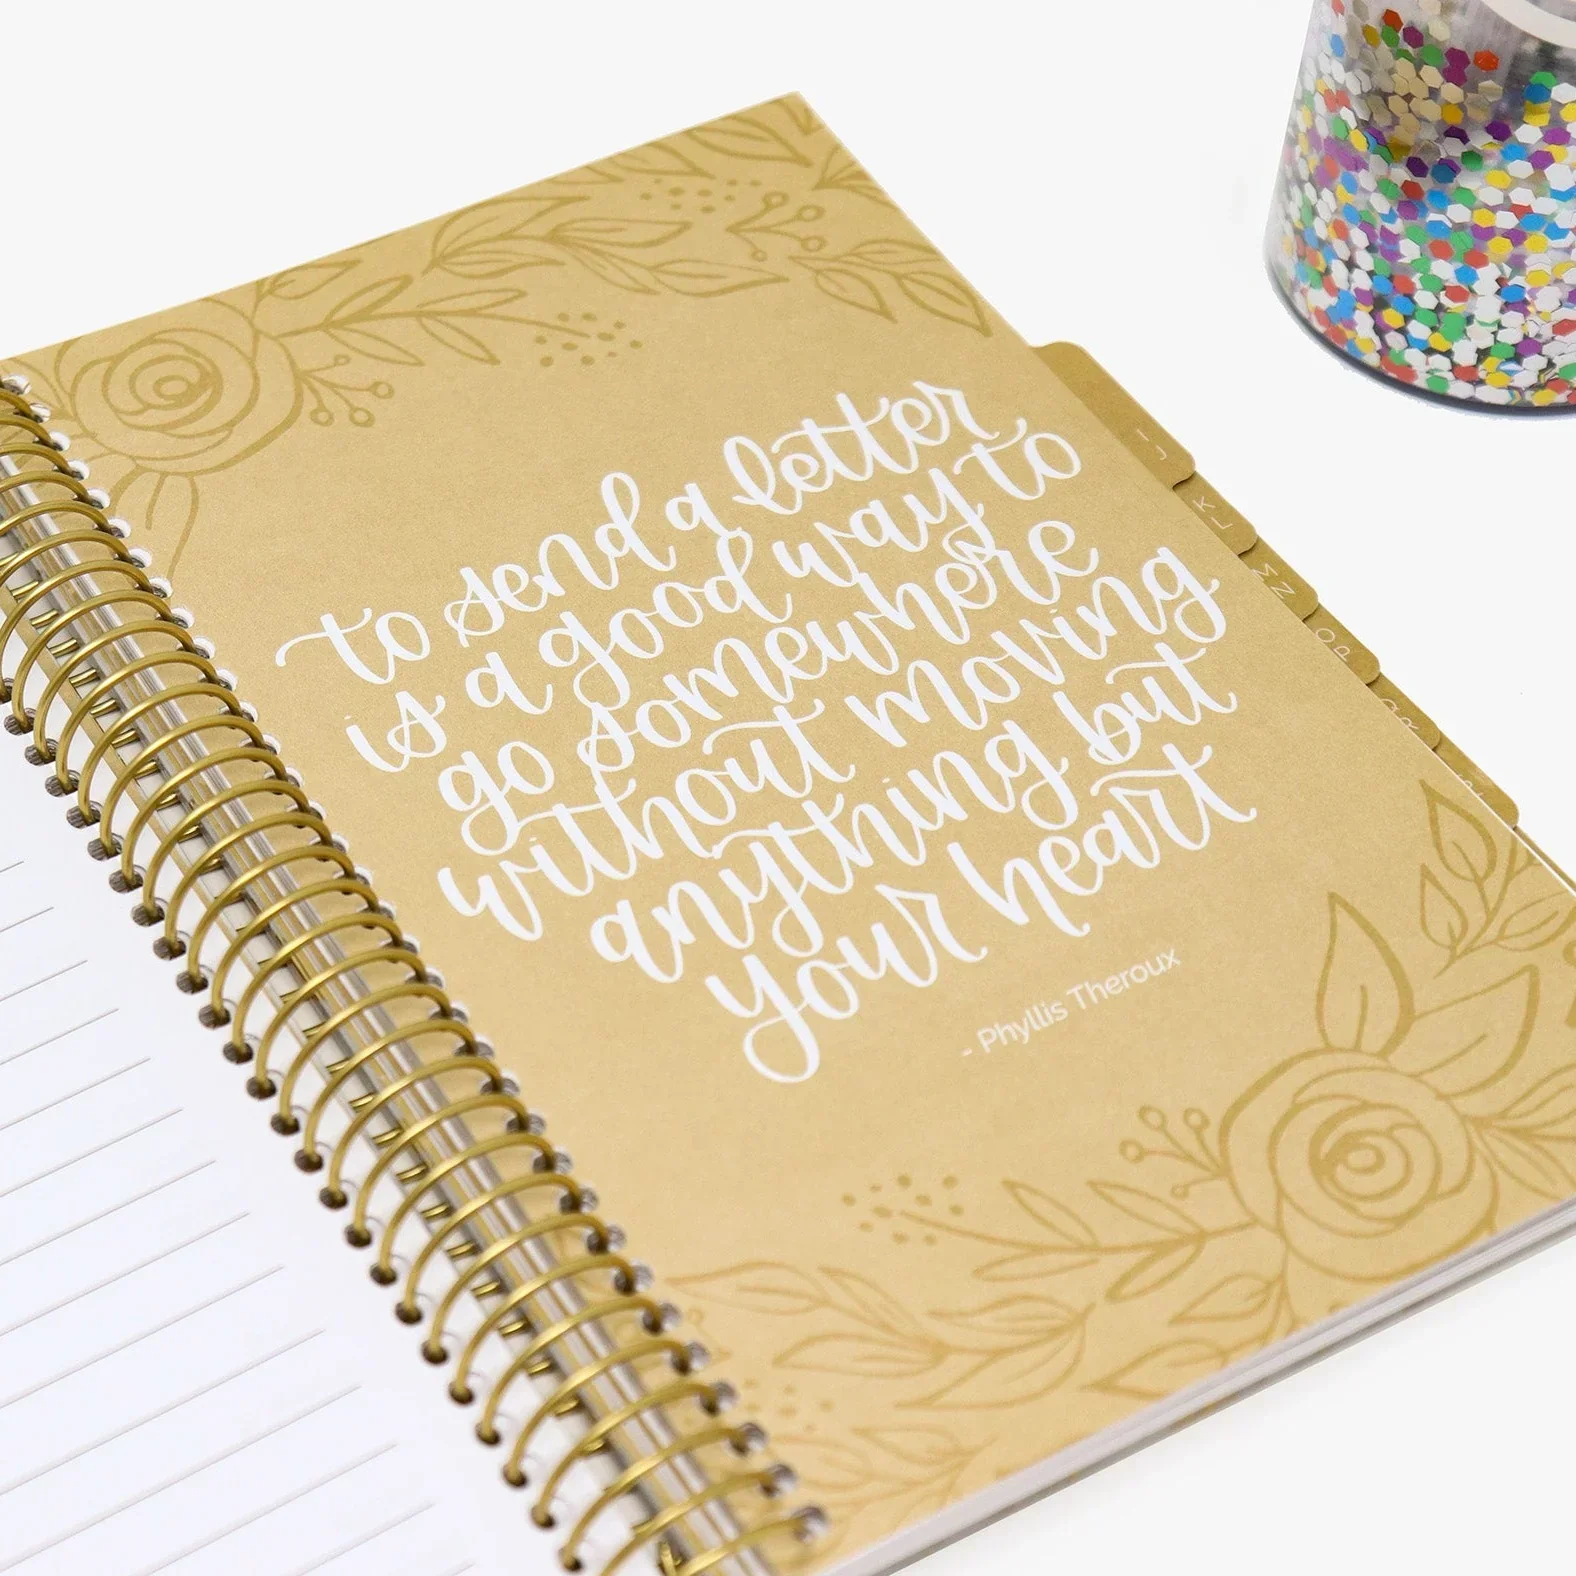 to send a letter
is a good way to
go somewhere
without moving
anything but
your heart
- Phyllis Theroux
I
J
K
L
M
N
O
P
Q
R